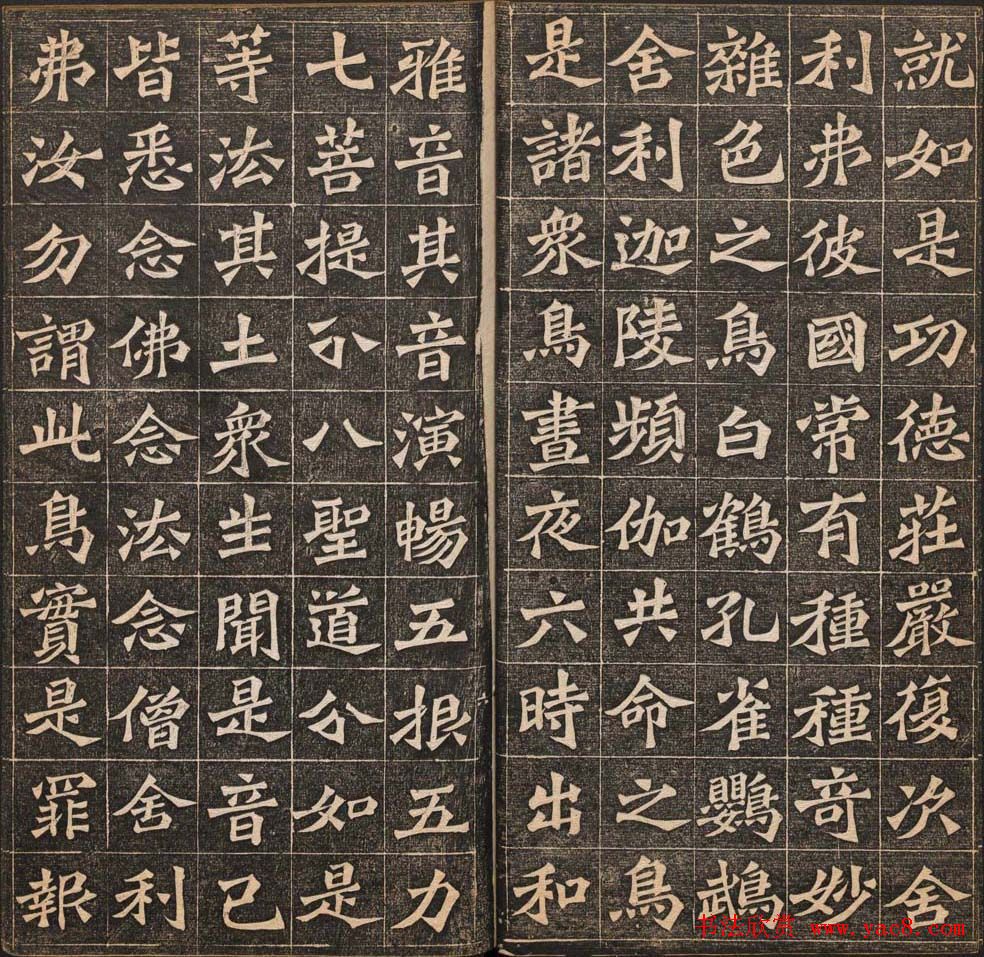 就如是功德莊嚴復次舍
利弗彼國常有種種奇妙
雜色之鳥白鶴孔雀鸚鵡
舍利迦陵頻伽共命之鳥
是諸衆鳥晝夜六時出和
雅音其音演暢五根五力
七菩提分八聖道分如是
等法其土衆生聞是音已
皆悉念佛念法念僧舍利
弗汝勿謂此鳥實是罪報
书法欣赏 www.yac8.com